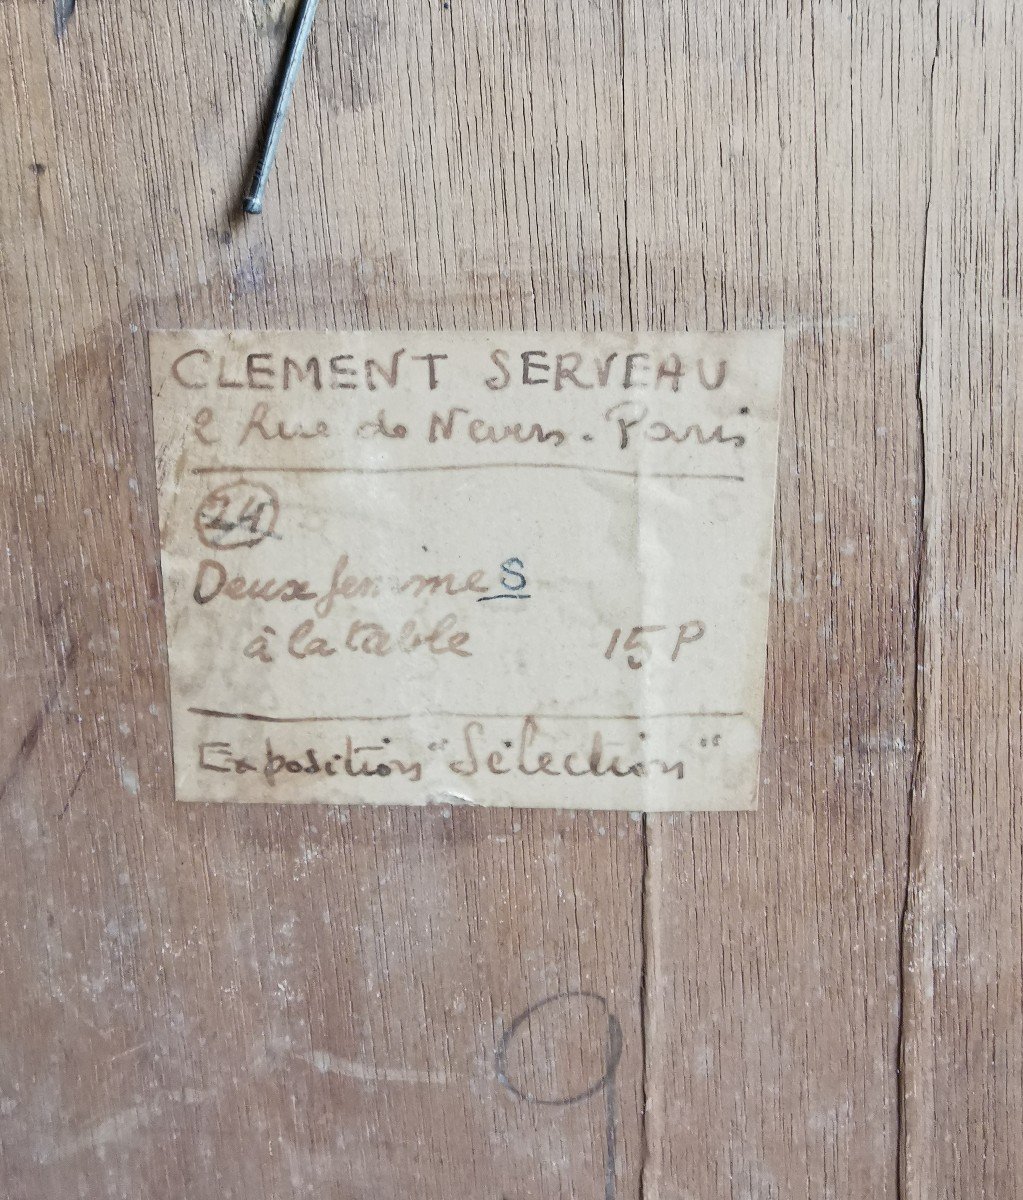 CLEMENT SERVEAU
2 Rue de Nevers. Paris
24
Deux femmes
à la table 15 P
Exposition "Sélection"